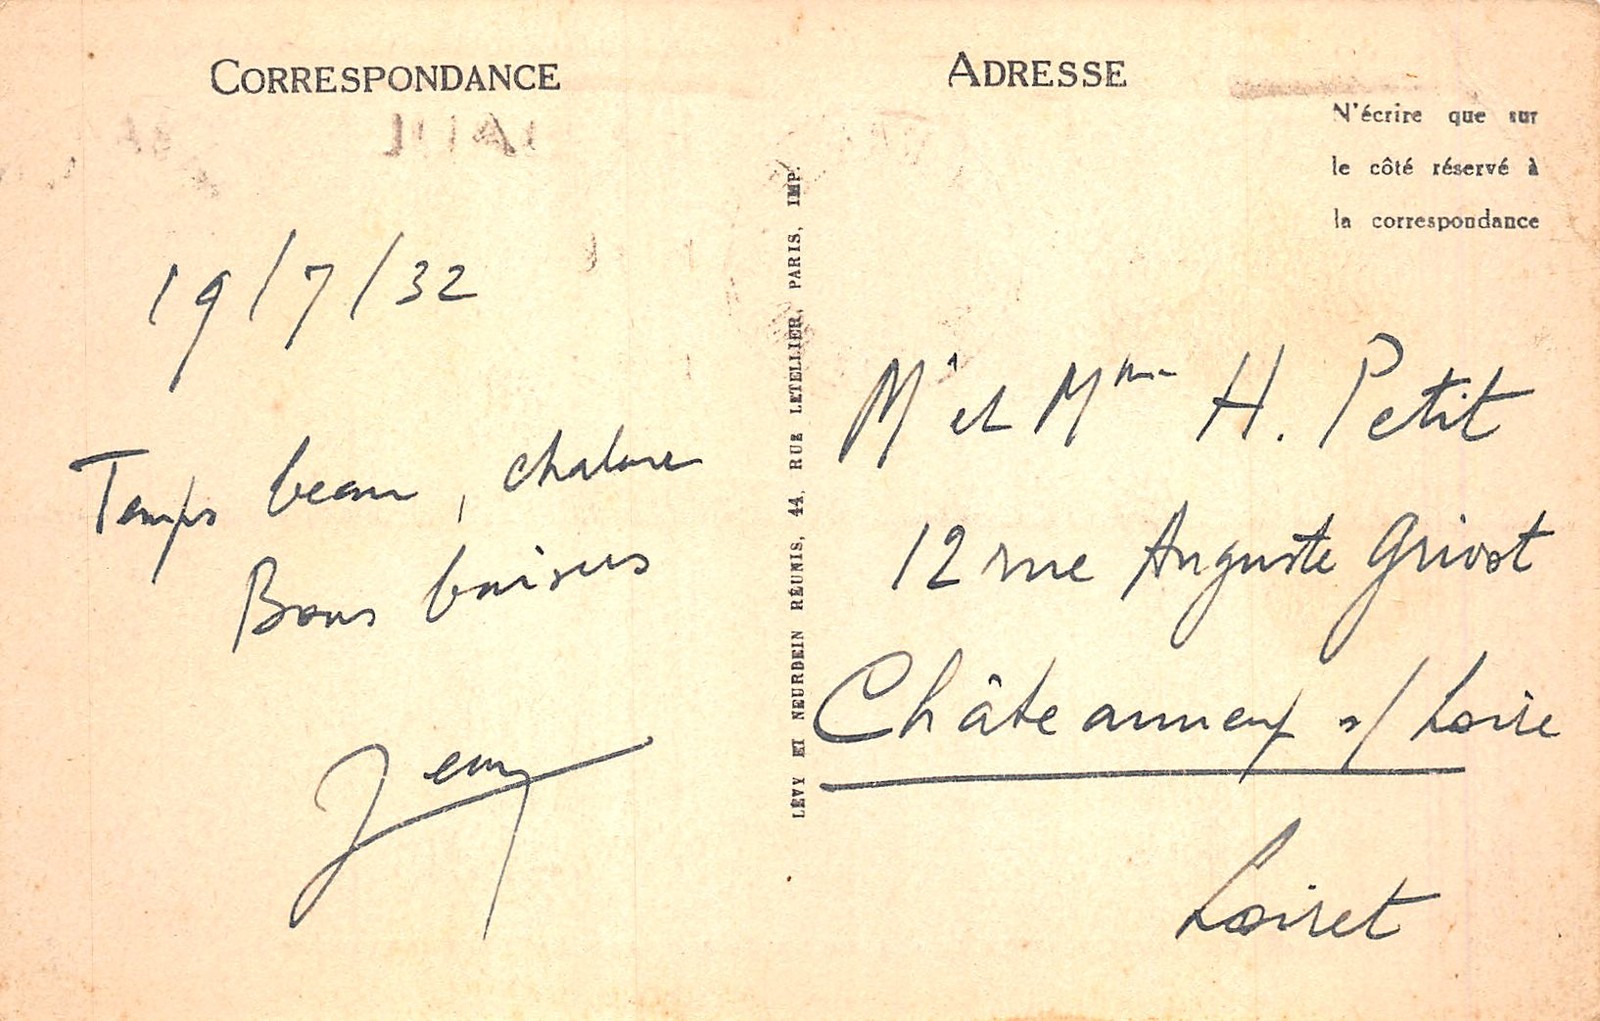 CORRESPONDANCE
19/7/32
Temps beau, chaleur
Bons baisers
Jean
LÉVY ET NEURDEIN RÉUNIS, 44, RUE LETELLIER, PARIS, IMP.
ADRESSE
N'écrire que sur
le côté réservé à
la correspondance
Mr et Mme H. Petit
12 rue Auguste Grivot
Châteauneuf s/ Loire
Loiret